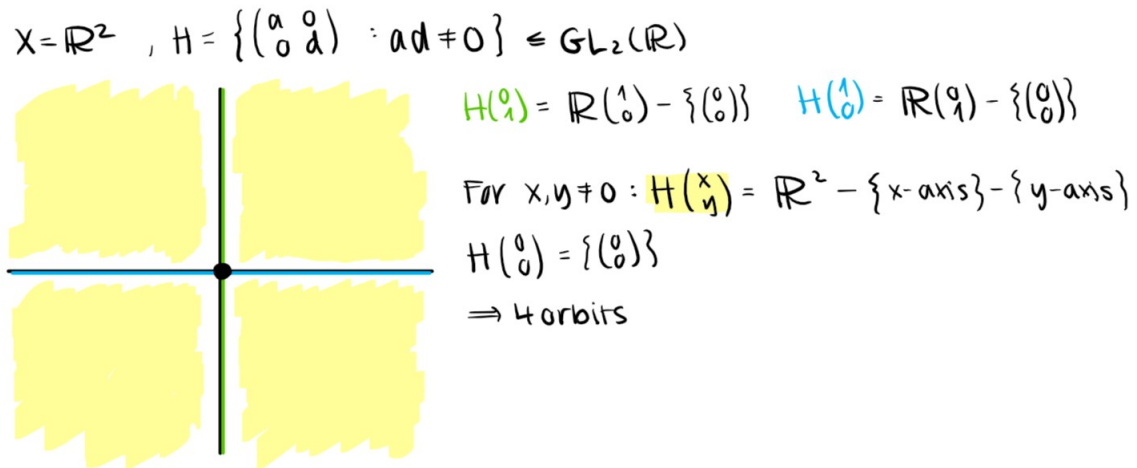 X = ℝ² , H = {(a 0 / 0 d) : ad ≠ 0} ≤ GL₂(ℝ)
H(0 / 1) = ℝ(1 / 0) - {(0 / 0)}   H(1 / 0) = ℝ(0 / 1) - {(0 / 0)}
For x,y ≠ 0 : H(x / y) = ℝ² - {x-axis} - {y-axis}
H(0 / 0) = {(0 / 0)}
⇒ 4 orbits